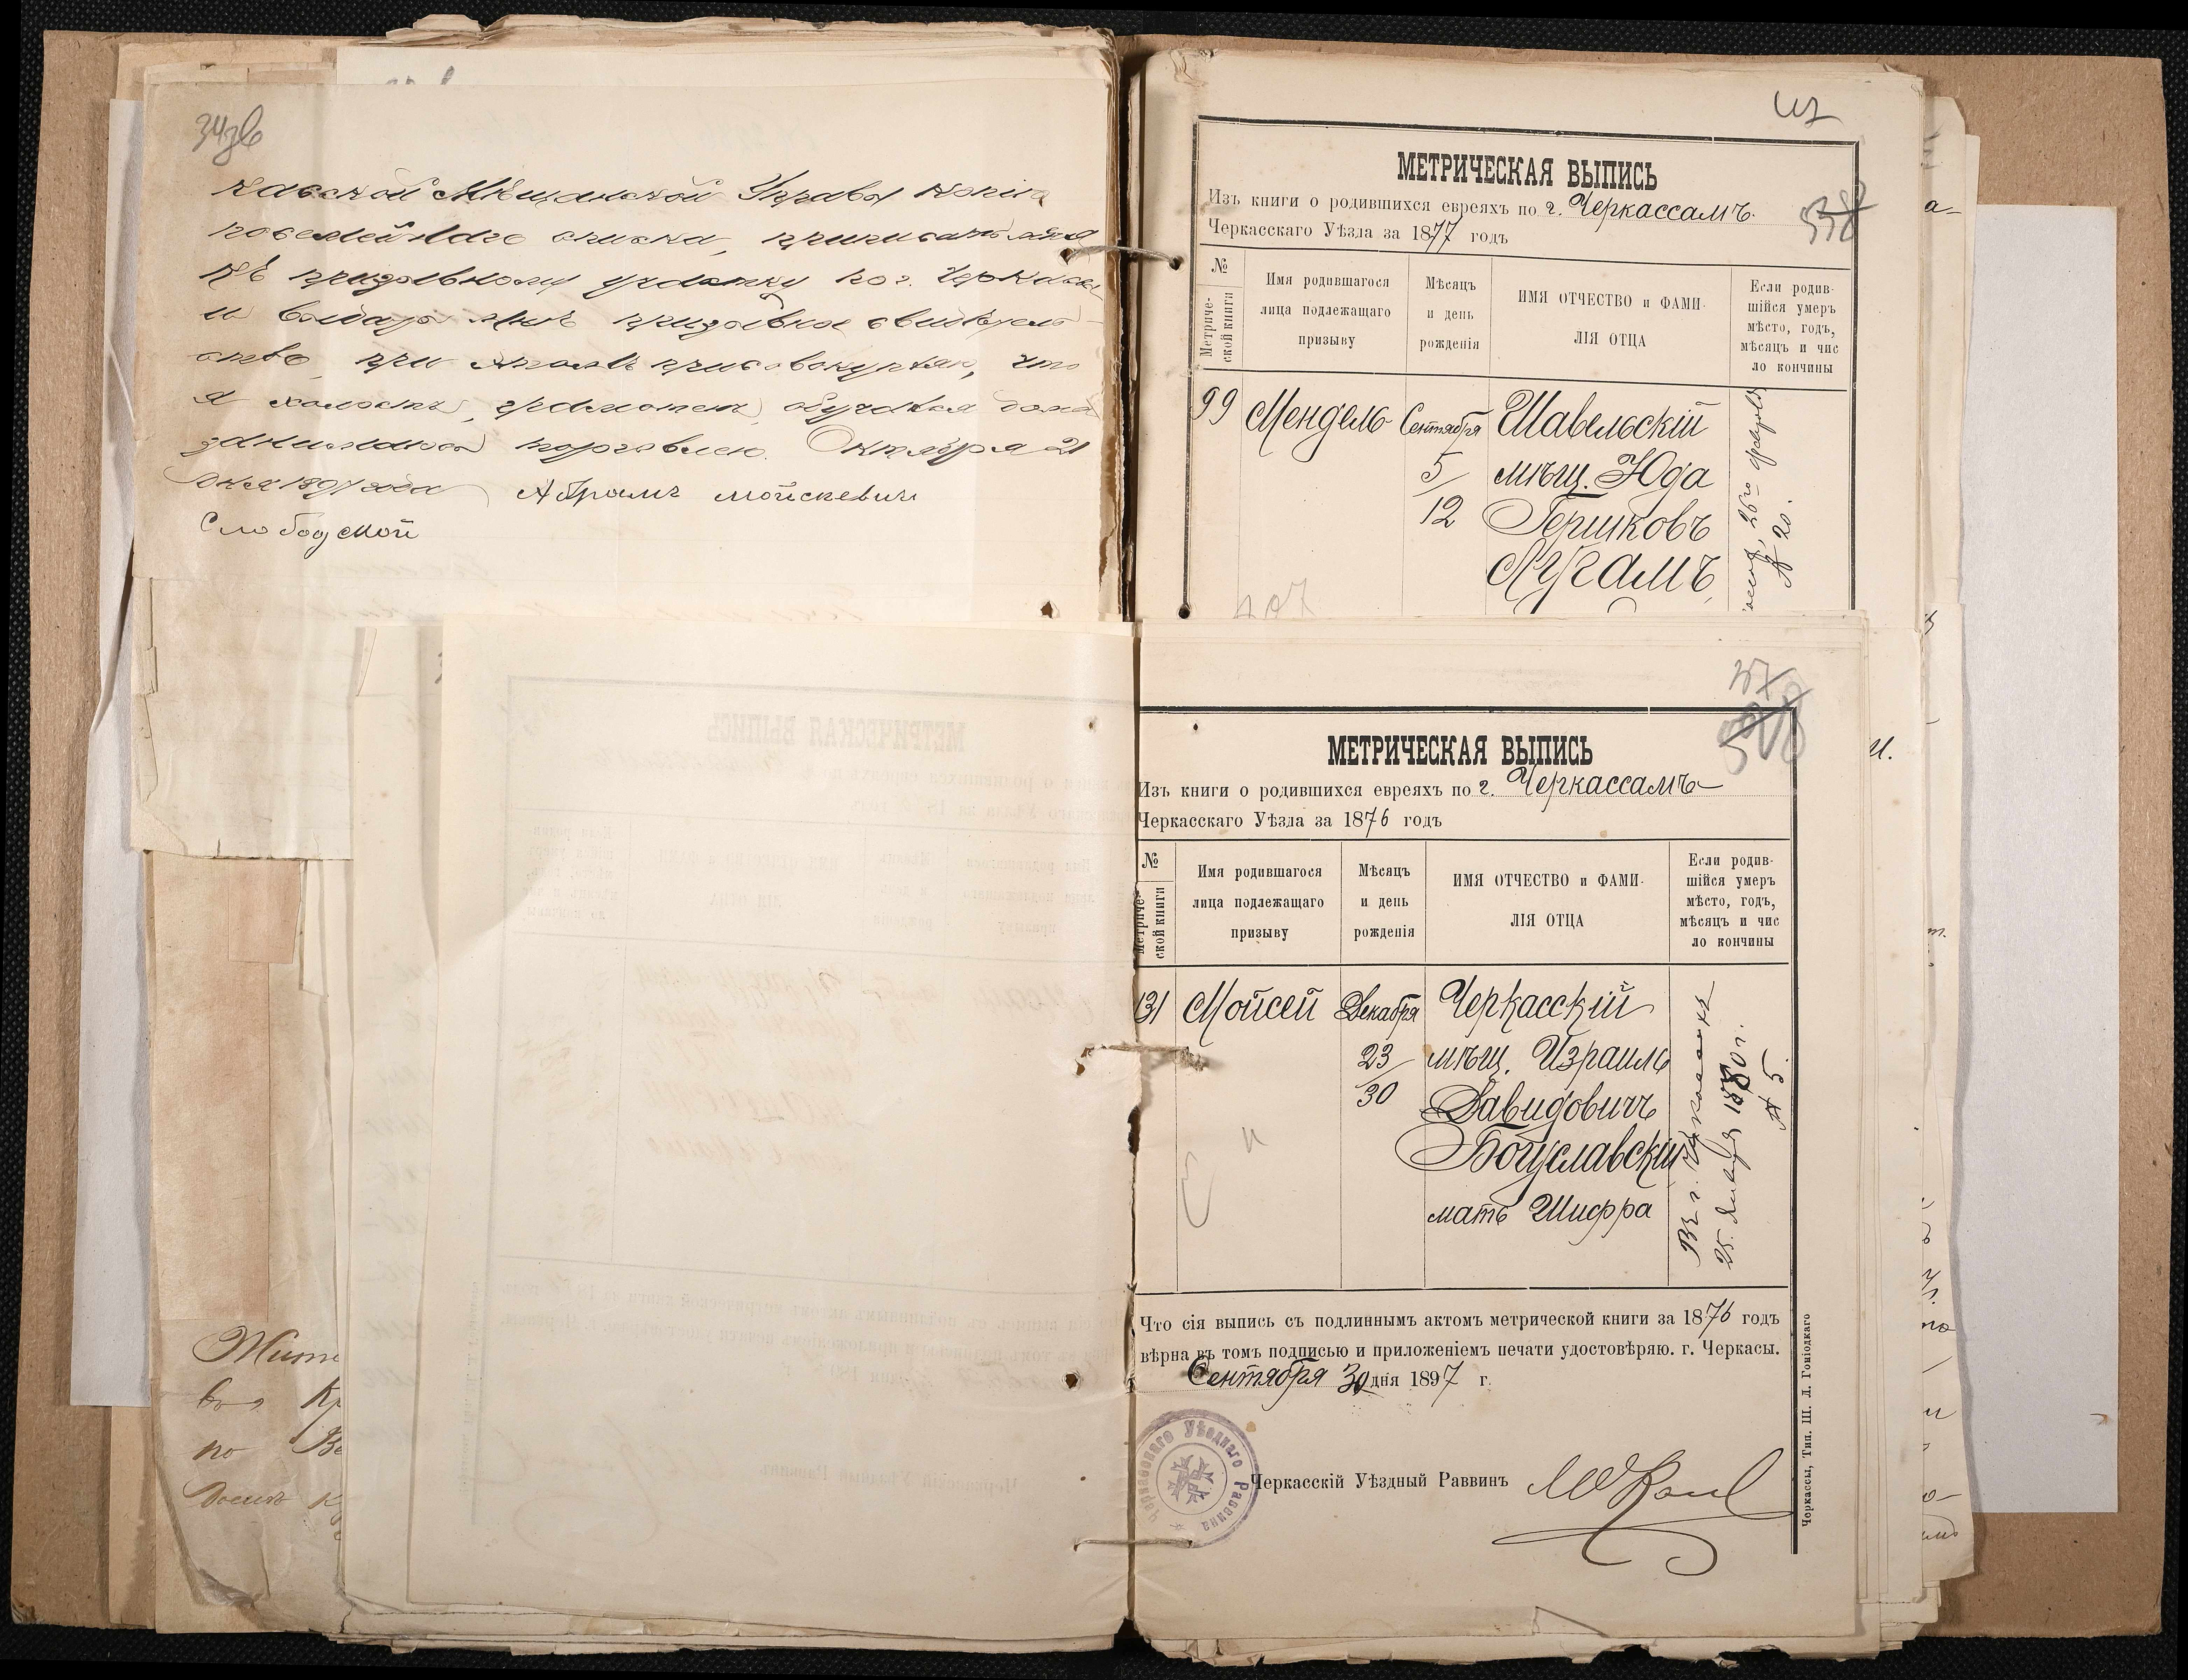 касской Мѣщанской Управы копія
посемейнаго списка, приписать меня
къ призывному участку по г. Черкассы
и выдать мнѣ призывное свидѣтель-
ство, при этомъ присовокупляю, что
я холостъ, грамотенъ, обучался дома
занимаюсь торговлею. Октября 21
дня 1897 года Абрамъ Мойсеевичъ
Слободской
МЕТРИЧЕСКАЯ ВЫПИСЬ
Изъ книги о родившихся евреяхъ по г. Черкассамъ
Черкасскаго Уѣзда за 1877 годъ
№ Метриче-ской книги
Имя родившагося лица подлежащаго призыву
Мѣсяцъ и день рожденія
ИМЯ ОТЧЕСТВО и ФАМИ-ЛІЯ ОТЦА
Если родив-шійся умеръ мѣсто, годъ, мѣсяцъ и чис ло кончины
99 Мендель Сентября Шавельскій
5 мѣщ. Юда
12 Гершковъ
№ 20.
МЕТРИЧЕСКАЯ ВЫПИСЬ
Изъ книги о родившихся евреяхъ по г. Черкассамъ
Черкасскаго Уѣзда за 1876 годъ
№ Метриче-ской книги
Имя родившагося лица подлежащаго призыву
Мѣсяцъ и день рожденія
ИМЯ ОТЧЕСТВО и ФАМИ-ЛІЯ ОТЦА
Если родив-шійся умеръ мѣсто, годъ, мѣсяцъ и чис ло кончины
131 Мойсей Декабря Черкасскій
23 мѣщ. Израиль
30 Давидовичъ
Богуславскій
мать Шифра
Въ г. Черкассахъ
25 Января 1880 г.
№ 5.
Что сія выпись съ подлиннымъ актомъ метрической книги за 1876 годъ
вѣрна въ томъ подписью и приложеніемъ печати удостовѣряю. г. Черкасы.
Сентября 30 дня 1897 г.
Черкасскаго Уѣзднаго Раввина
Черкасскій Уѣздный Раввинъ
Черкассы, Тип. Ш. Л. Гоніодкаго